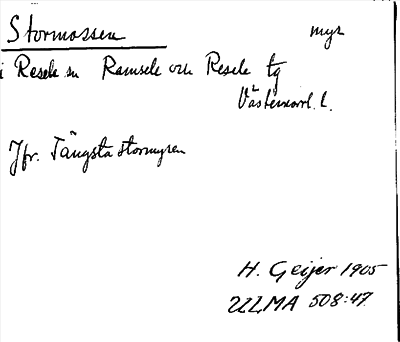 Stormossen myr
i Resele sn Ramsele och Resele tg
Västernorrl. l.
Jfr. Tängsta stormyren
H. Geijer 1905
ULMA 508:47.